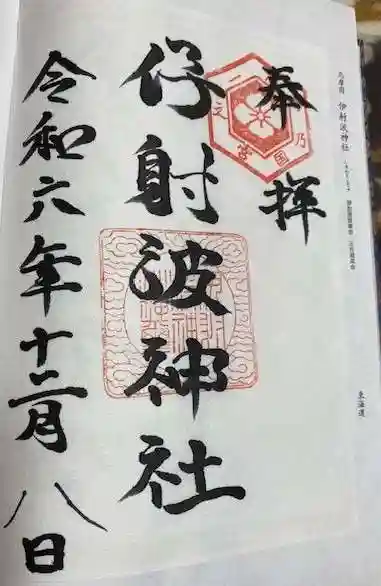 志摩国 伊射波神社
東海道
奉拝
一之宮
乃国
伊射波神社
令和六年十二月八日